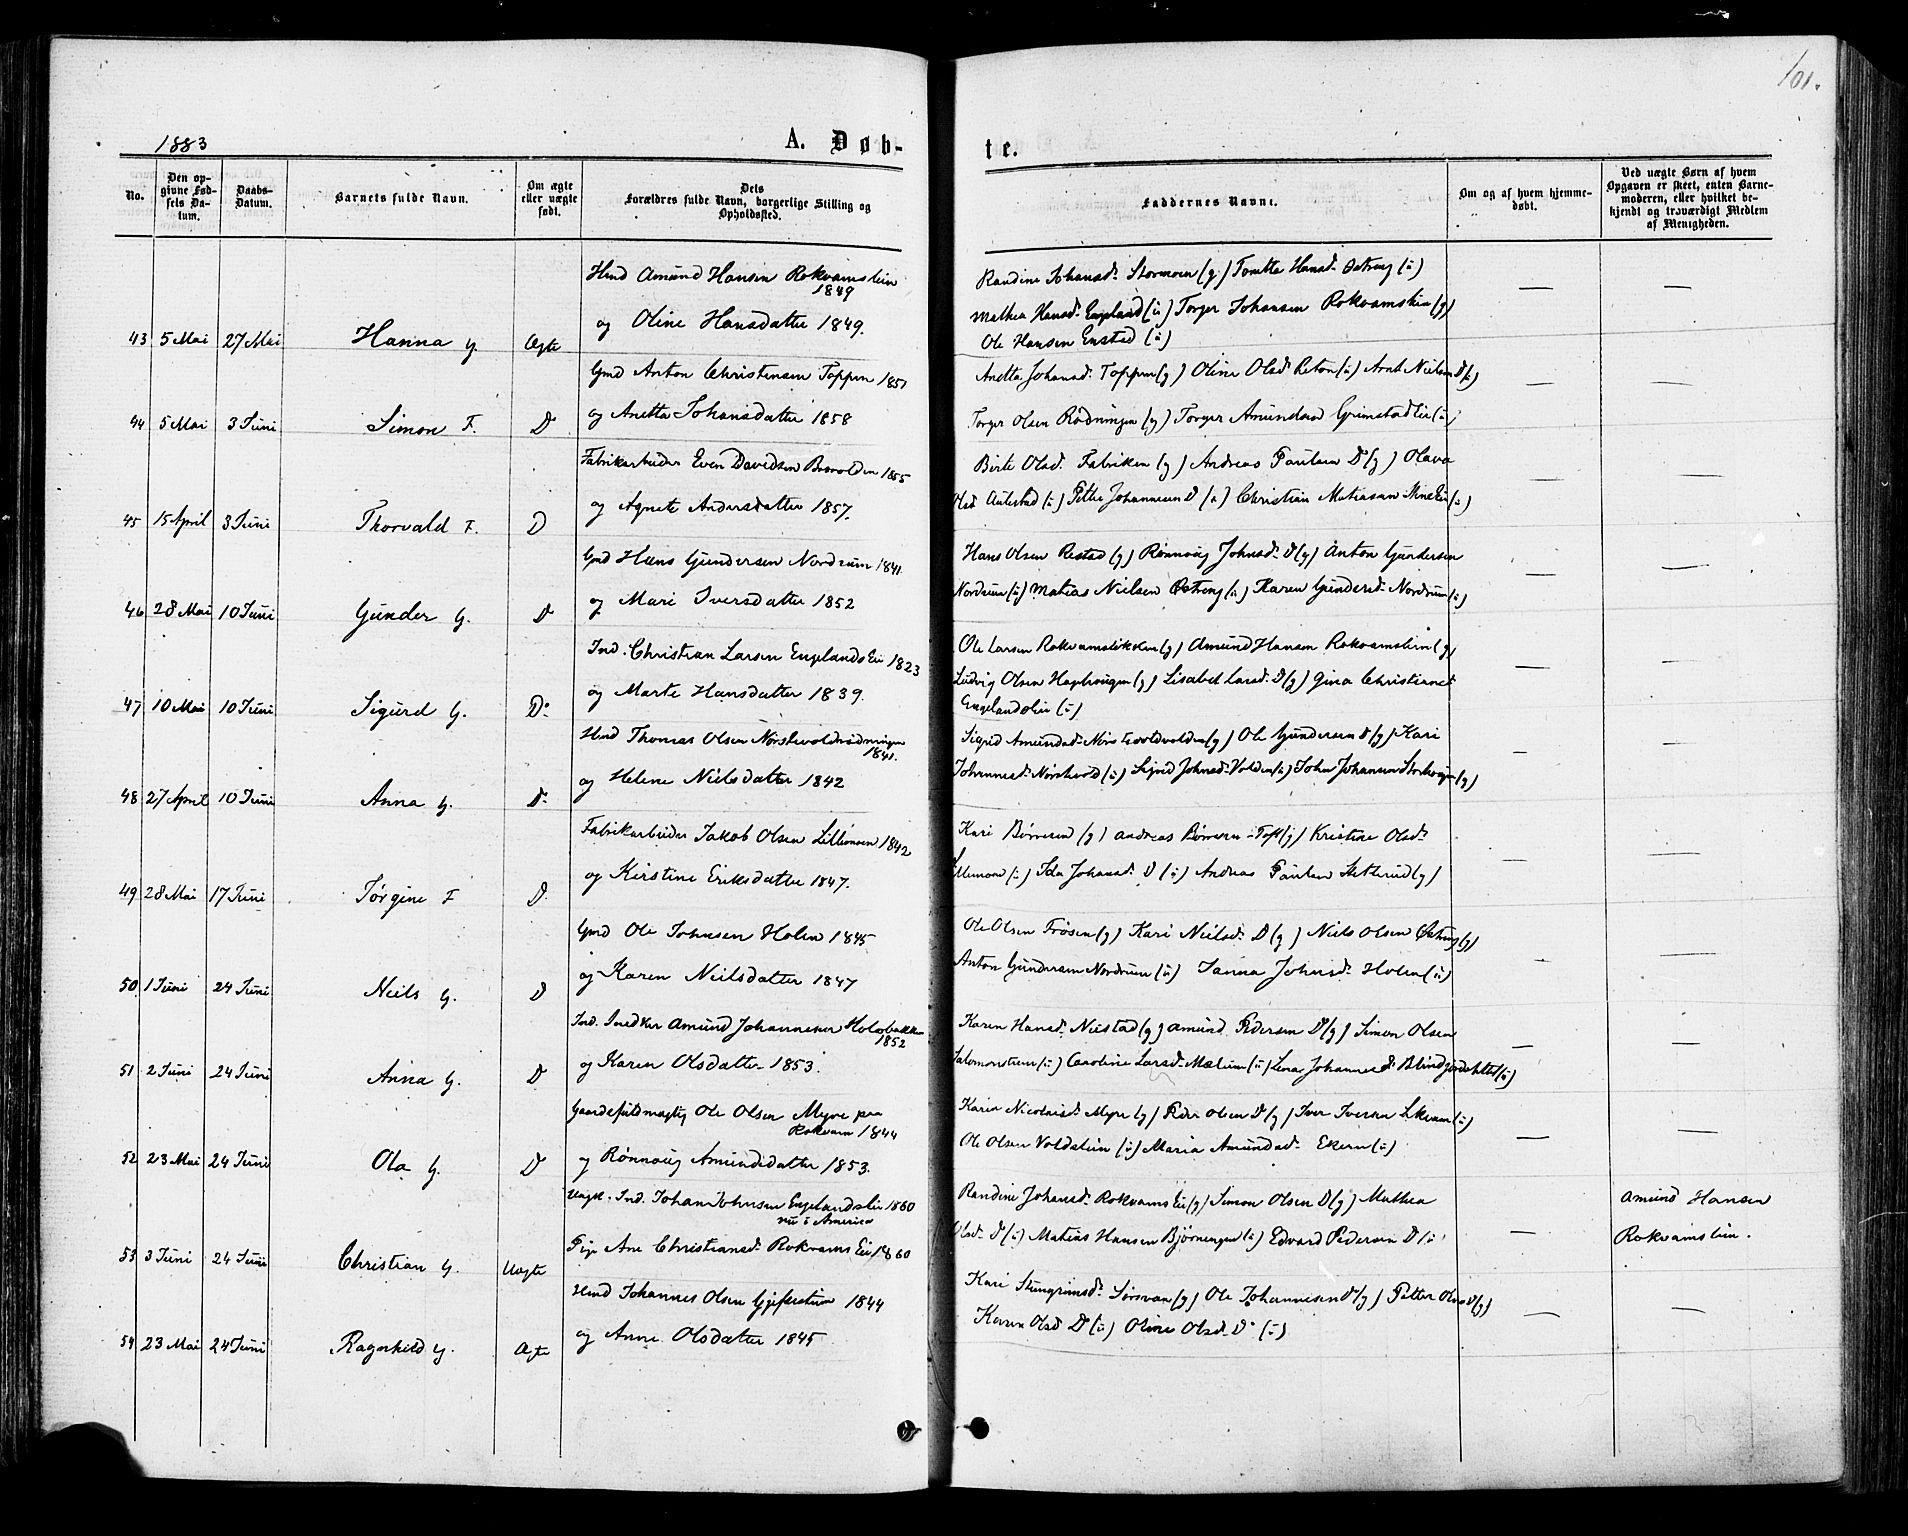 101.
1883
A. Døb-
te.
No.
Den op-
givne Fød-
sels Da-
tum.
Daabs-
Datum.
Barnets fulde Navn.
Om ægte
eller uægte
født.
Dets
Forældres fulde Navn, borgerlige Stilling og
Opholdssted.
Faddernes Navne.
Om og af hvem hjemme-
døbt.
Ved uægte Børn af hvem
Opgaven er skeet, enten Barne-
moderen, eller hvilket be-
kjendt og troværdigt Medlem
af Menigheden.
Hmd Amund Hansen Rokvamslien
1849
og Oline Hansdatter 1849.
43 5 Mai 27 Mai Hanna G. Ægte
Randine Johansd. Stormoen (g) Torette Hansd. Østeng (u)
Mathea Hansd. England (u) Torger Johansen Rokvamslien (g)
Ole Hansen Enstad (u)
Gmd Anton Christensen Toppen 1851
og Anetta Johansdatter 1858
44 5 Mai 3 Juni Simon F. D
Anetta Johansd. Toppen (g) Oline Olsd. (u) Arnt Nielsen D (u)
Torger Olsen Rødningen (g) Torger Amundsen Grimstadlie (u)
Fabrikarbeider Even Davidsen 1855
og Agnete Andersdatter 1857.
45 15 April 3 Juni Thorvald F. D
Birte Olsd. Fabriken (g) Andreas Paulsen D (g) Olava
Olsd Aulestad (u) Petter Johannesen D (u) Christian Matiasen (u)
Gmd Hans Gundersen Nordrum 1841.
og Mari Iversdatter 1852
46 28 Mai 10 Juni Gunder G. D
Hans Olsen Restad (g) Rønnoug Johnsd. D (g) Anton Gundersen
Nordrum (u) Matias Nielsen Østeng (u) Karen Gundersd. Nordrum (u)
Ind. Christian Larsen Englands Eie 1823
og Marte Hansdatter 1839.
47 10 Mai 10 Juni Sigurd G. Do
Ole Larsen (g) Amund Hansen Rokvamslien (g)
Ludvig Olsen Haphougen (g) Lisabet Larsd. D (g) Gina Christiansd
Englandslie (u)
Hmd Thomas Olsen Nørstevoldrødningen
1841.
og Helene Nielsdatter 1842
48 27 April 10 Juni Anna G. Do
Sigrid Amundsd. (g) Ole Gundersen D (g) Kari
Johannesd. Nørstevold (u) Sigrid Johnsd. Volden (u) John Johansen (g)
Fabrikarbeider Jakob Olsen Lillemoen 1842
og Kirstine Eriksdatter 1847.
49 28 Mai 17 Juni Jørgine F D.
Kari (g) Andreas (g) Kristine Olsd.
Lillemoen (u) Ida Johansd. D (u) Andreas Paulsen (g)
Gmd Ole Johnsen Holen 1845
og Karen Neilsdatter 1847
50 1 Juni 24 Juni Neils G. D
Ole Olsen Frøsen (g) Kari Neilsd. D (g) Niels Olsen Østeng (g)
Anton Gundersen Nordrum (u) Janna Johnsd. Holen (u)
Ind. Snedker Amund Johannesen Holsbakken
1852
og Karen Olsdatter 1853.
51 2 Juni 24 Juni Anna G. D
Karen Hansd. Neistad (g) Amund Pedersen D (g) Simon Olsen
Salomonstuen (u) Caroline Larsd. Mælum (u) Lena Johannesd. (u)
Gaardsfuldmægtig Ole Olsen Myre paa
Rokvam 1844
og Rønnoug Amundsdatter 1853.
52 23 Mai 24 Juni Ola G. D
Karen Nicolaisd. Myre (g) Peder Olsen D (g) Iver Iversen (u)
Ole Olsen Voldslien (u) Maria Amundsd. Ekern (u)
Ungk. Ind. Johan Johnsen Englandslie 1860
nu i America
Pige Ane Christiansd. Rokvams Eie 1860
53 3 Juni 24 Juni Christian G. Uægte
Randine Johansd. Rokvams Eie (g) Simon Olsen D (g) Mathea
Olsd. D (u) Matias Hansen Bjørningen (u) Edvard Pedersen D (u)
Amund Hansen
Rokvamslien.
Hmd Johannes Olsen 1844
og Anne Olsdatter 1845
54 23 Mai 24 Juni Ragnhild G. Ægte
Kari Steengrimsd. (g) Ole Johannesen D (g) Petter Olsen D (g)
Karen Olsd D (u) Oline Olsd. D. (u)